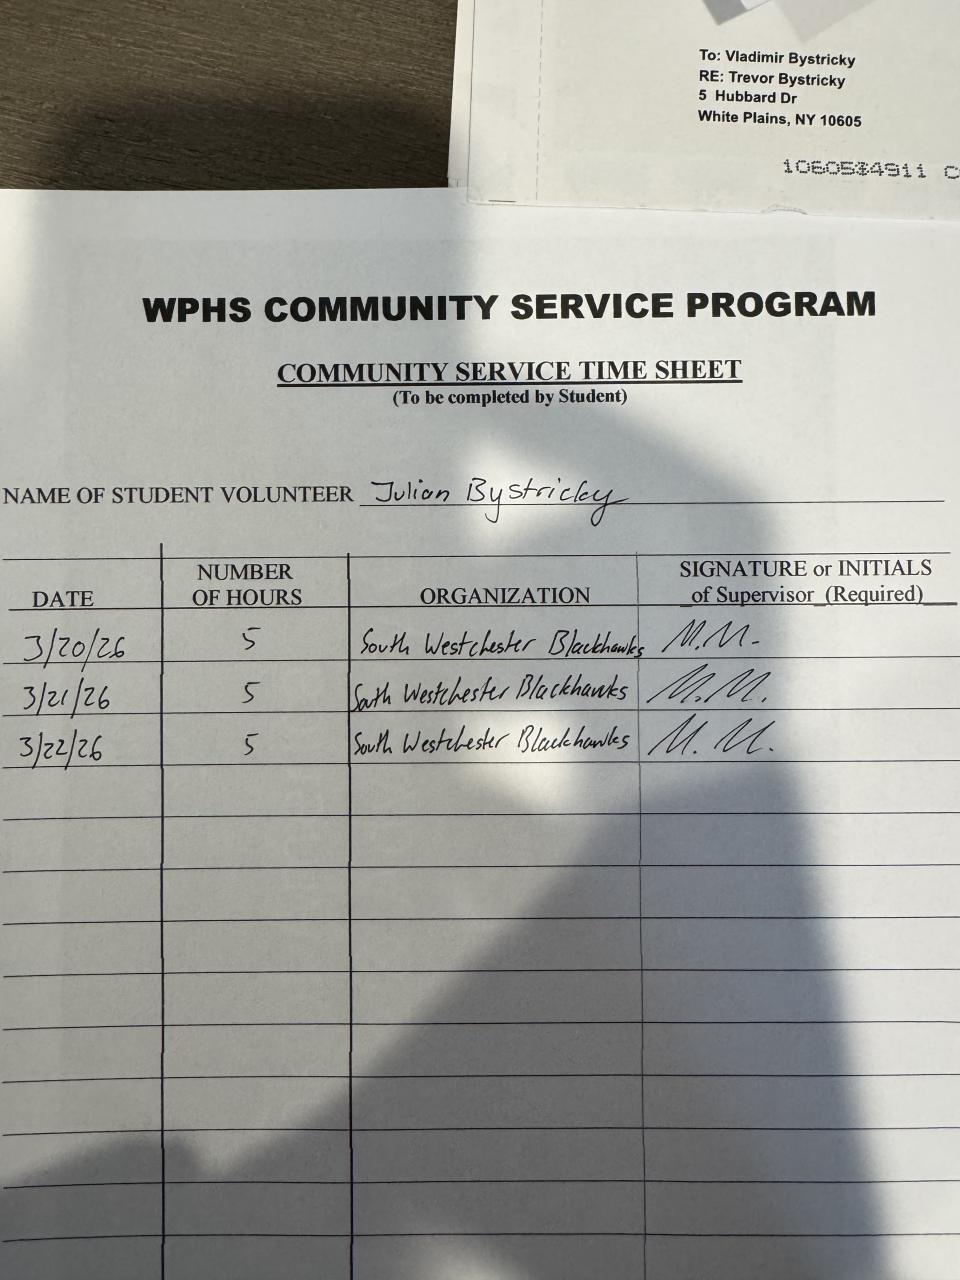 To: Vladimir Bystricky
RE: Trevor Bystricky
5 Hubbard Dr
White Plains, NY 10605
WPHS COMMUNITY SERVICE PROGRAM
COMMUNITY SERVICE TIME SHEET
(To be completed by Student)
NAME OF STUDENT VOLUNTEER Julian Bystricky
DATE NUMBER OF HOURS ORGANIZATION SIGNATURE or INITIALS of Supervisor (Required)
3/20/26 5 South Westchester Blackhawks M.M.
3/21/26 5 South Westchester Blackhawks M.M.
3/22/26 5 South Westchester Blackhawks M.M.